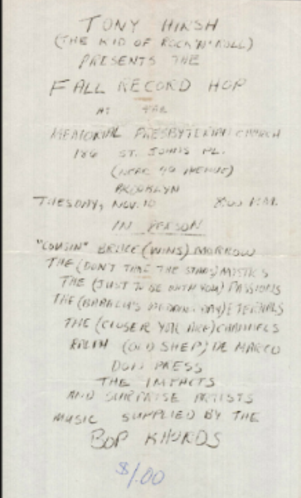 TONY HINSH
(THE KID OF ROCK'N'ROLL)
PRESENTS THE
FALL RECORD HOP
AT THE
MEMORIAL PRESBYTERIAN CHURCH
186 ST. JOHNS PL.
(NEAR AVENUE)
BROOKLYN
TUESDAY, NOV. 10 8:00
IN PERSON
"COUSIN" BRUCE (WINS) MORROW
THE (DON'T TAKE THE STARS) MYSTICS
THE (JUST TO BE WITH YOU) PASSIONS
THE (BABALU'S WEDDING DAY) ETERNALS
THE (CLOSER YOU ARE) CHANNELS
RALPH (OLD SHEP) DE MARCO
DON PRESS
THE IMPACTS
AND SURPRISE ARTISTS
MUSIC SUPPLIED BY THE
BOP KHORDS
$1.00